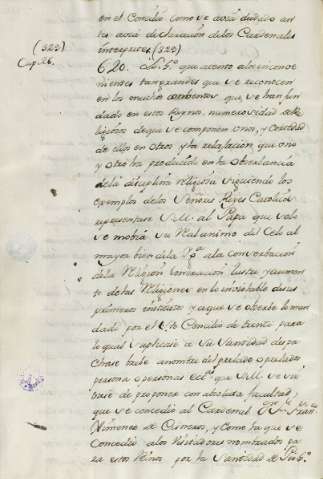 en el Concilio como se avia dudado an
tes avia declaracion de los Cardenales
(322)
interpretes (322)
Cap. 26.
620.
que atento a los inconve
nientes tan grandes que se reconocen
en los muchos conventos que se han fun
dado en este Reyno, numerosidad de Re
ligiosos de que se componen unos, y cortedad
de ellos en otros y la relaxacion, que uno
y otro ha producido en la observancia
de la disciplina religiosa siguiendo los
exemplos de los Señores Reyes Catolicos
representase V.M. al Papa que solo
se mobia su Real animo del Celo al
mayor bien de la a la conserbacion
de la Religion lustre y aumen
to de las Religiones en lo inviolable de sus
primeros institutos y a que se observe lo man
dado por el Concilio de Trento para
lo qual suplicase a Su Santidad despa
chase bulla prelado o prelados
persona o personas que V.M. se sir
biese de proponer con absoluta facultad,
que se concedio al Cardenal Fr. Fran.
Ximenez de Cisneros, y como la que se
concedio a los Visitadores nombrados pa
ra estos Reinos por la Santidad de Pio